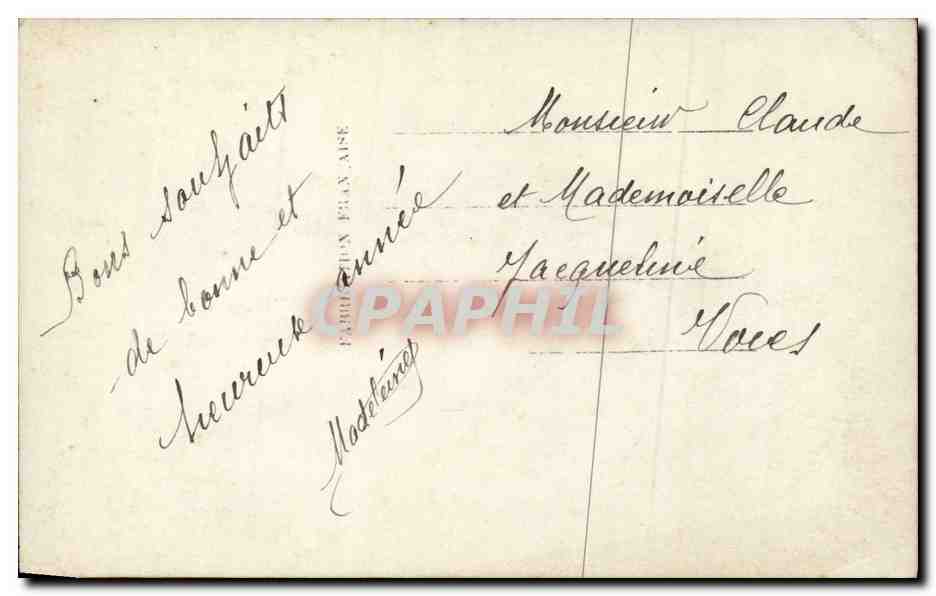 Bons souhaits
de bonne et
heureuse année
Madeleine
FABRICATION FRANÇAISE
Monsieur Claude
et Mademoiselle
Jacqueline
CPAPHIL